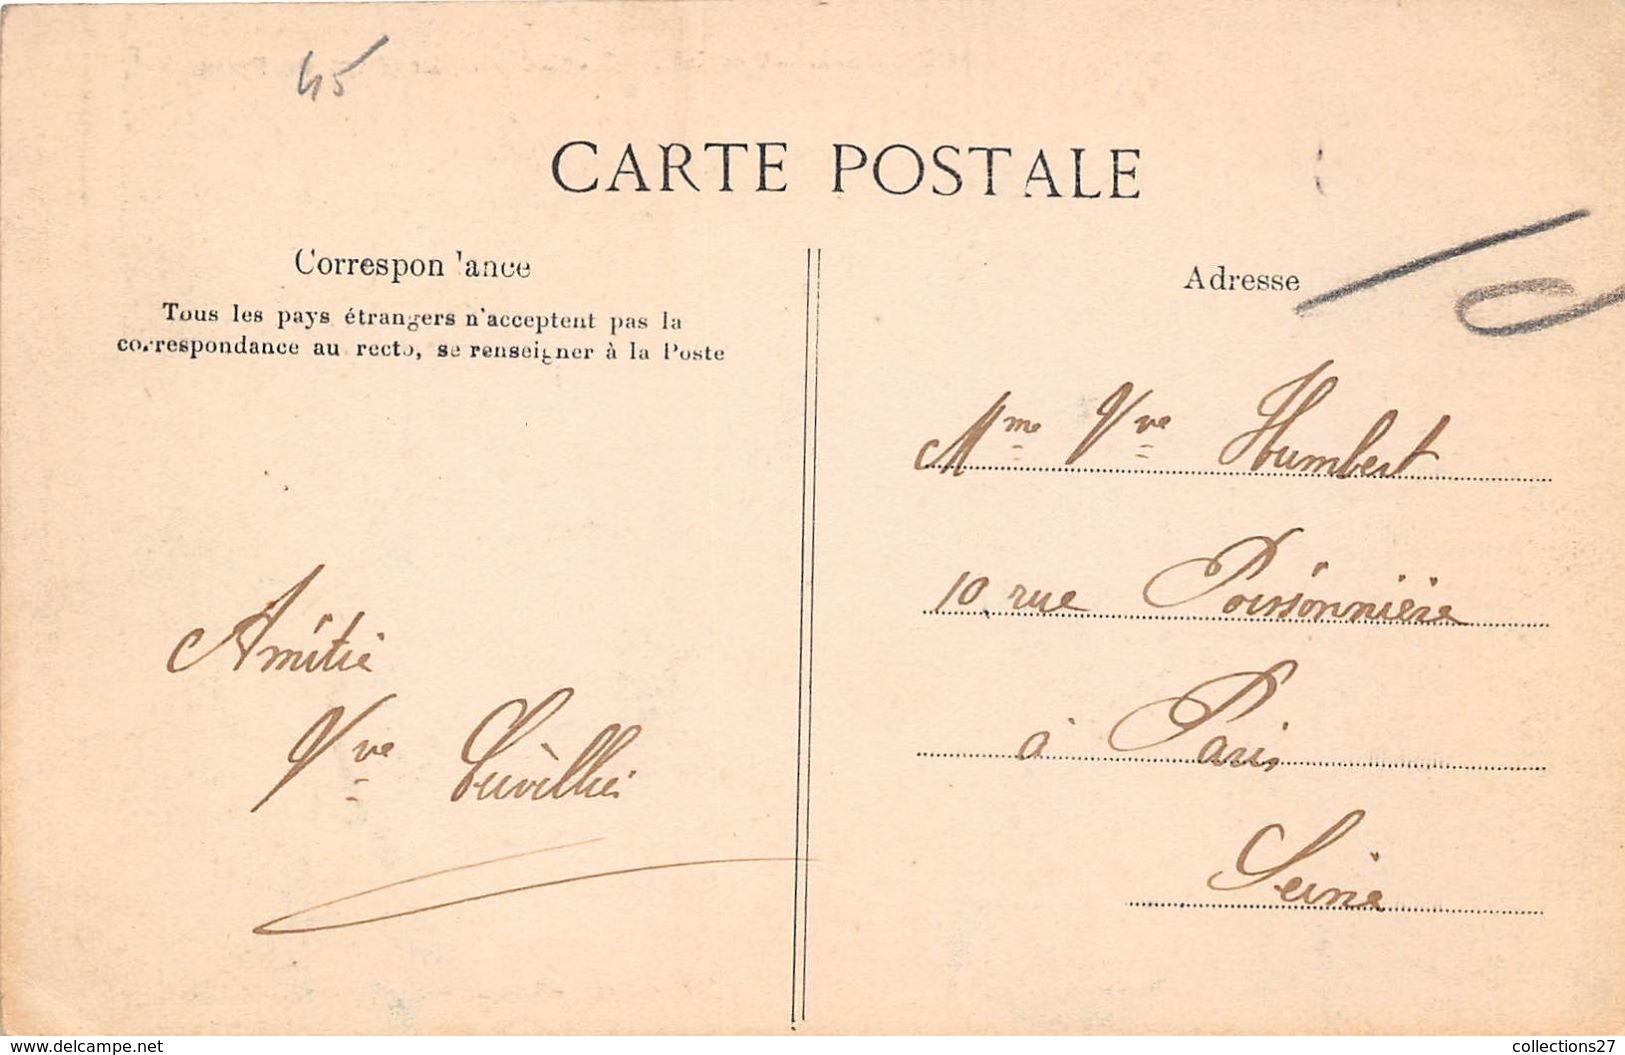 45
CARTE POSTALE
Correspondance
Tous les pays étrangers n'acceptent pas la
correspondance au recto, se renseigner à la Poste
Adresse
Mme Vve Humbert
10 rue Poissonnière
à Paris
Seine
Amitié
Vve
www.delcampe.net
collections27